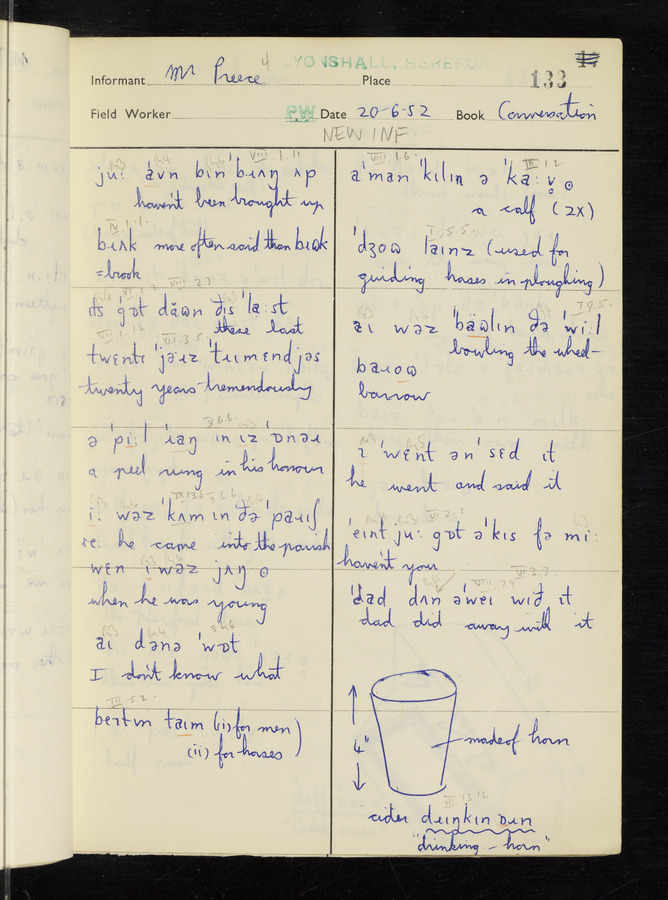 YONSHALL, HEREFOR
Informant Mr Preece 4 Place
133
Field Worker PW Date 20-6-52 Book Conversation
NEW INF
VIII.1.11
ju: ávn bin 'bɹʌŋ ʌp
haven't been brought up
bɹʌk more often said than bɹɷk
= brook
VIII.2.7
ɪts 'gɒt dăwn ðɪs 'la:st
these last
VII.1.12 VIII.3.5
twentɪ 'jəɪz 'tɹɪmɛndjəs
twenty years tremendously
V.6.6.
ə 'pi:l ɹaŋ ɪn ɪz 'ɒnəɹ
a peel rung in his honour
i: wəz 'kʌm ɪn ðə 'paɹɪʃ
he came into the parish
wɛn i wəz jʌŋ ⊙
when he was young
aɪ dənə 'wɒt
I don't know what
III.5.2.
beɪtɪn taɪm (i) for men )
(ii) for horses
VIII.1.6. III.1.2.
a 'man 'kɪlɪn ə 'ka:v ⊙
a calf (2X)
I.5.5.
'dʒɒɷ laɪnz (used for
guiding horses in ploughing)
I.9.5.
aɪ wəz 'bäɷlɪn ðə 'wi:l
bowling the wheel-
baɹɷ
barrow
ɪ 'wɛnt ən' sɛd ɪt
he went and said it
'eɪnt ju: gɒt ə 'kɪs fə mi:
haven't you
'dad dʌn ə'weɪ wɪð ɪt
dad did away with it
4"
made of horn
III.13.12
cider dɹɪŋkɪn ɒɹn
"drinking-horn"